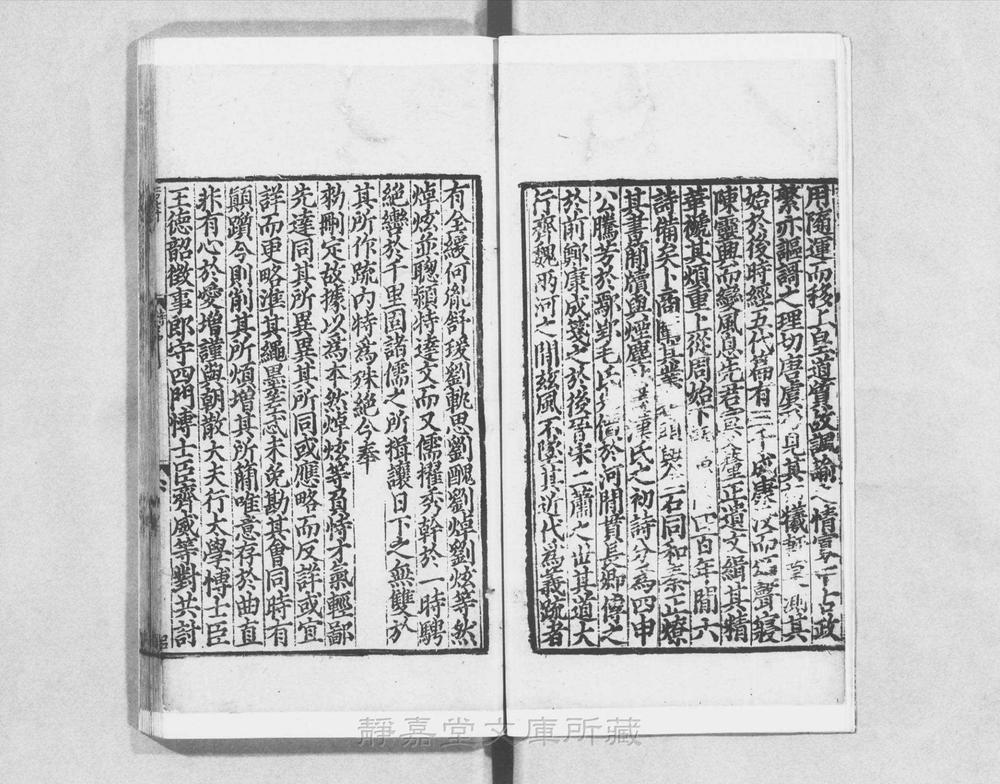 用隨運而移上皇道質故諷諭之情寡中古政
繁亦謳謌之理切唐虞乃見其犧莫測其
始於後時經五代篇有三千成康沒而頌聲寢
陳靈興而變風息先君宣釐正遺文緝其精
華褫其煩重上從周始下四百年間六
詩備矣卜商闡其業頌與金石同和秦正燎
其書簡牘與煙塵漢氏之初詩分為四申
公騰芳於鄢郢毛氏價於河間貫長卿傳之
於前鄭康成箋之於後晉宋二蕭之世其道大
行齊魏兩河之間茲風不墜其近代為義疏者
有全緩何胤舒瑗劉軌思劉醜劉焯劉炫等然
焯炫並聰穎特達文而又儒擢秀幹於一時騁
絕轡於千里固諸儒之所揖讓日下之無雙於
其所作疏內特為殊絕今奉
勑刪定故據以為本然焯炫等負恃才氣輕鄙
先達同其所異異其所同或應略而反詳或宜
詳而更略準其繩墨差忒未免勘其會同時有
顛躓今則削其所煩增其所簡唯意存於曲直
非有心於愛增謹與朝散大夫行太學博士臣
王德韶徵事郎守四門博士臣齊威等對共討
靜嘉堂文庫所藏